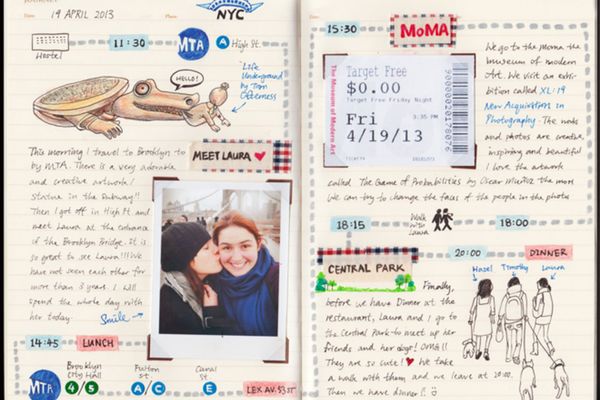 Date: 19 APRIL 2013
Place:
NYC
Hostel
11:30
MTA
A High St.
HELLO!
Life
Underground
by Tom
Otterness
This morning I travel to Brooklyn
by MTA. There is a very adorable
and creative artwork/
Statue in the Subway!!
Then I got off in High St and
meet Laura at the entrance
of the Brooklyn Bridge. It is
so great to see Laura!!! We
have not seen each other for
more than 3 years. I will
spend the whole day with
her today.
Smile
MEET LAURA
14:45
LUNCH
MTA
Brooklyn
City Hall
4/5
Fulton
St.
A/C
Canal
St
E
LEX AV. 53 ST
15:30
MoMA
The Museum of Modern Art
Target Free
$0.00
Target Free Friday Night
Fri
3:35 PM
4/19/13
We go to the Moma the
museum of modern
Art. We visit an exhi-
bition called XL:19
New Acquisition in
Photography. The works
and photos are creative,
inspiring and beautiful
I love the artwork
called The Game of Probabilities by Oscar the most
We can try to change the faces of the people in the photo
18:15
Walk
with
Laura
18:00
CENTRAL PARK
20:00
DINNER
Finally,
before we have Dinner at the
restaurant, Laura and I go to
the Central Park to meet up her
friends and her dogs! OMG!!
They are so cute! We take
a walk with them and we leave at 20:00.
Then we have dinner!!
Hazel
Timothy
Laura